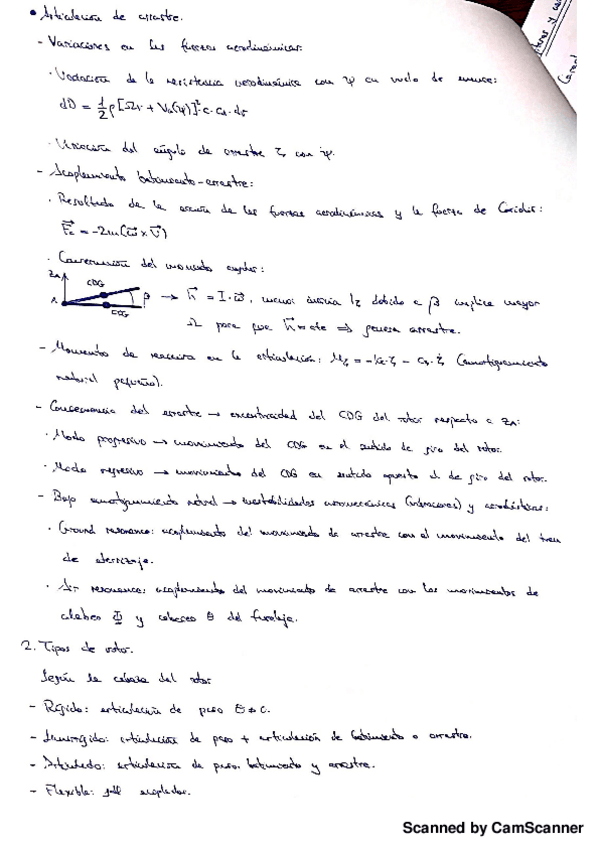 • Articulación de arrastre.
- Variaciones en las fuerzas aerodinámicas:
· Variación de la resistencia aerodinámica con ψ en vuelo de avance:
dD = 1/2 ρ [Ωr + V₀(ψ)]² · c · c_d · dr
· Variación del ángulo de arrastre ζ con ψ.
- Acoplamiento batimiento-arrastre:
· Resultado de la acción de las fuerzas aerodinámicas y la fuerza de Coriolis:
F⃗c = -2m(ω⃗ x V⃗)
· Conservación del momento angular:
Z_A CDG
A β → h⃗ = I · ω⃗, menor inercia Iz debido a β implica mayor
CDG Ω para que h⃗ = cte ⇒ genera arrastre.
- Momento de reacción en la articulación: (amortiguamiento
natural pequeño).
- Consecuencia del arrastre → excentricidad del CDG del rotor respecto a Z_A:
· Modo progresivo → movimiento del CDG en el sentido de giro del rotor.
· Modo regresivo → movimiento del CDG en sentido opuesto al de giro del rotor.
- Bajo amortiguamiento natural → inestabilidades aeromecánicas (vibraciones) y aeroelásticas:
· Ground resonance: acoplamiento del movimiento de arrastre con el movimiento del tren
de aterrizaje.
· Air resonance: acoplamiento del movimiento de arrastre con los movimientos de
alabeo Φ y cabeceo θ del fuselaje.
2. Tipos de rotor.
Según la cabeza del rotor
- Rígido: articulación de paso
- Semirrígido: articulación de paso + articulación de batimiento o arrastre.
- Articulado: articulación de paso, batimiento y arrastre.
- Flexible: full
Scanned by CamScanner